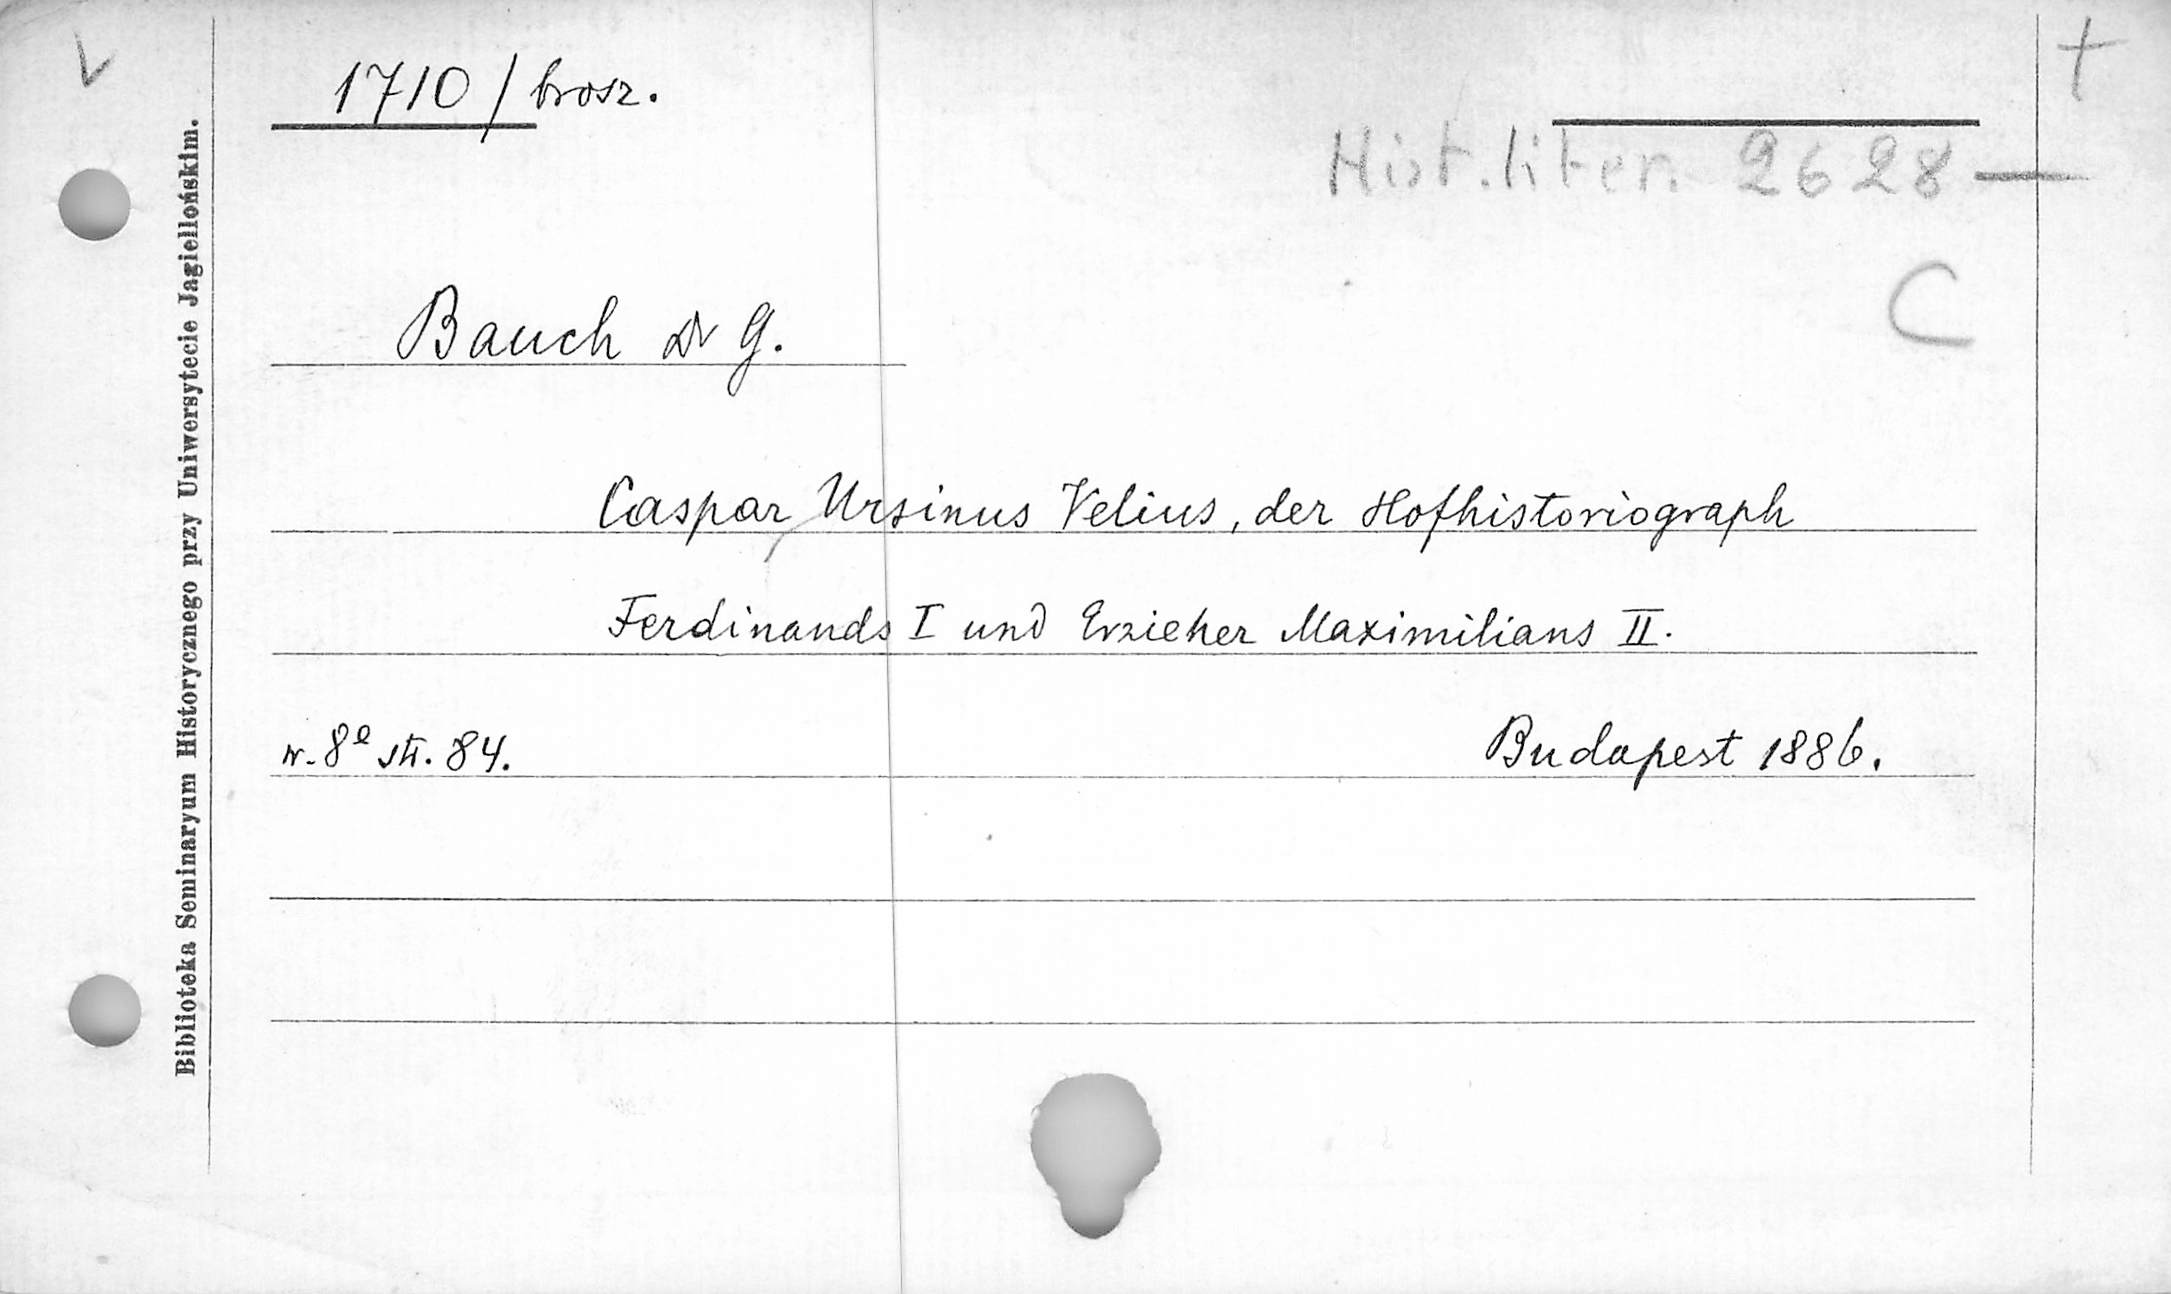 1710/brosz.
Hist.liter. 2628 —
C
Bauch Dr G.
Caspar Ursinus Velius, der Hofhistoriograph
Ferdinands I und Erzieher Maximilians II.
w. 8e str. 84.
Budapest 1886.
Biblioteka Seminaryum Historycznego przy Uniwersytecie Jagiellońskim.